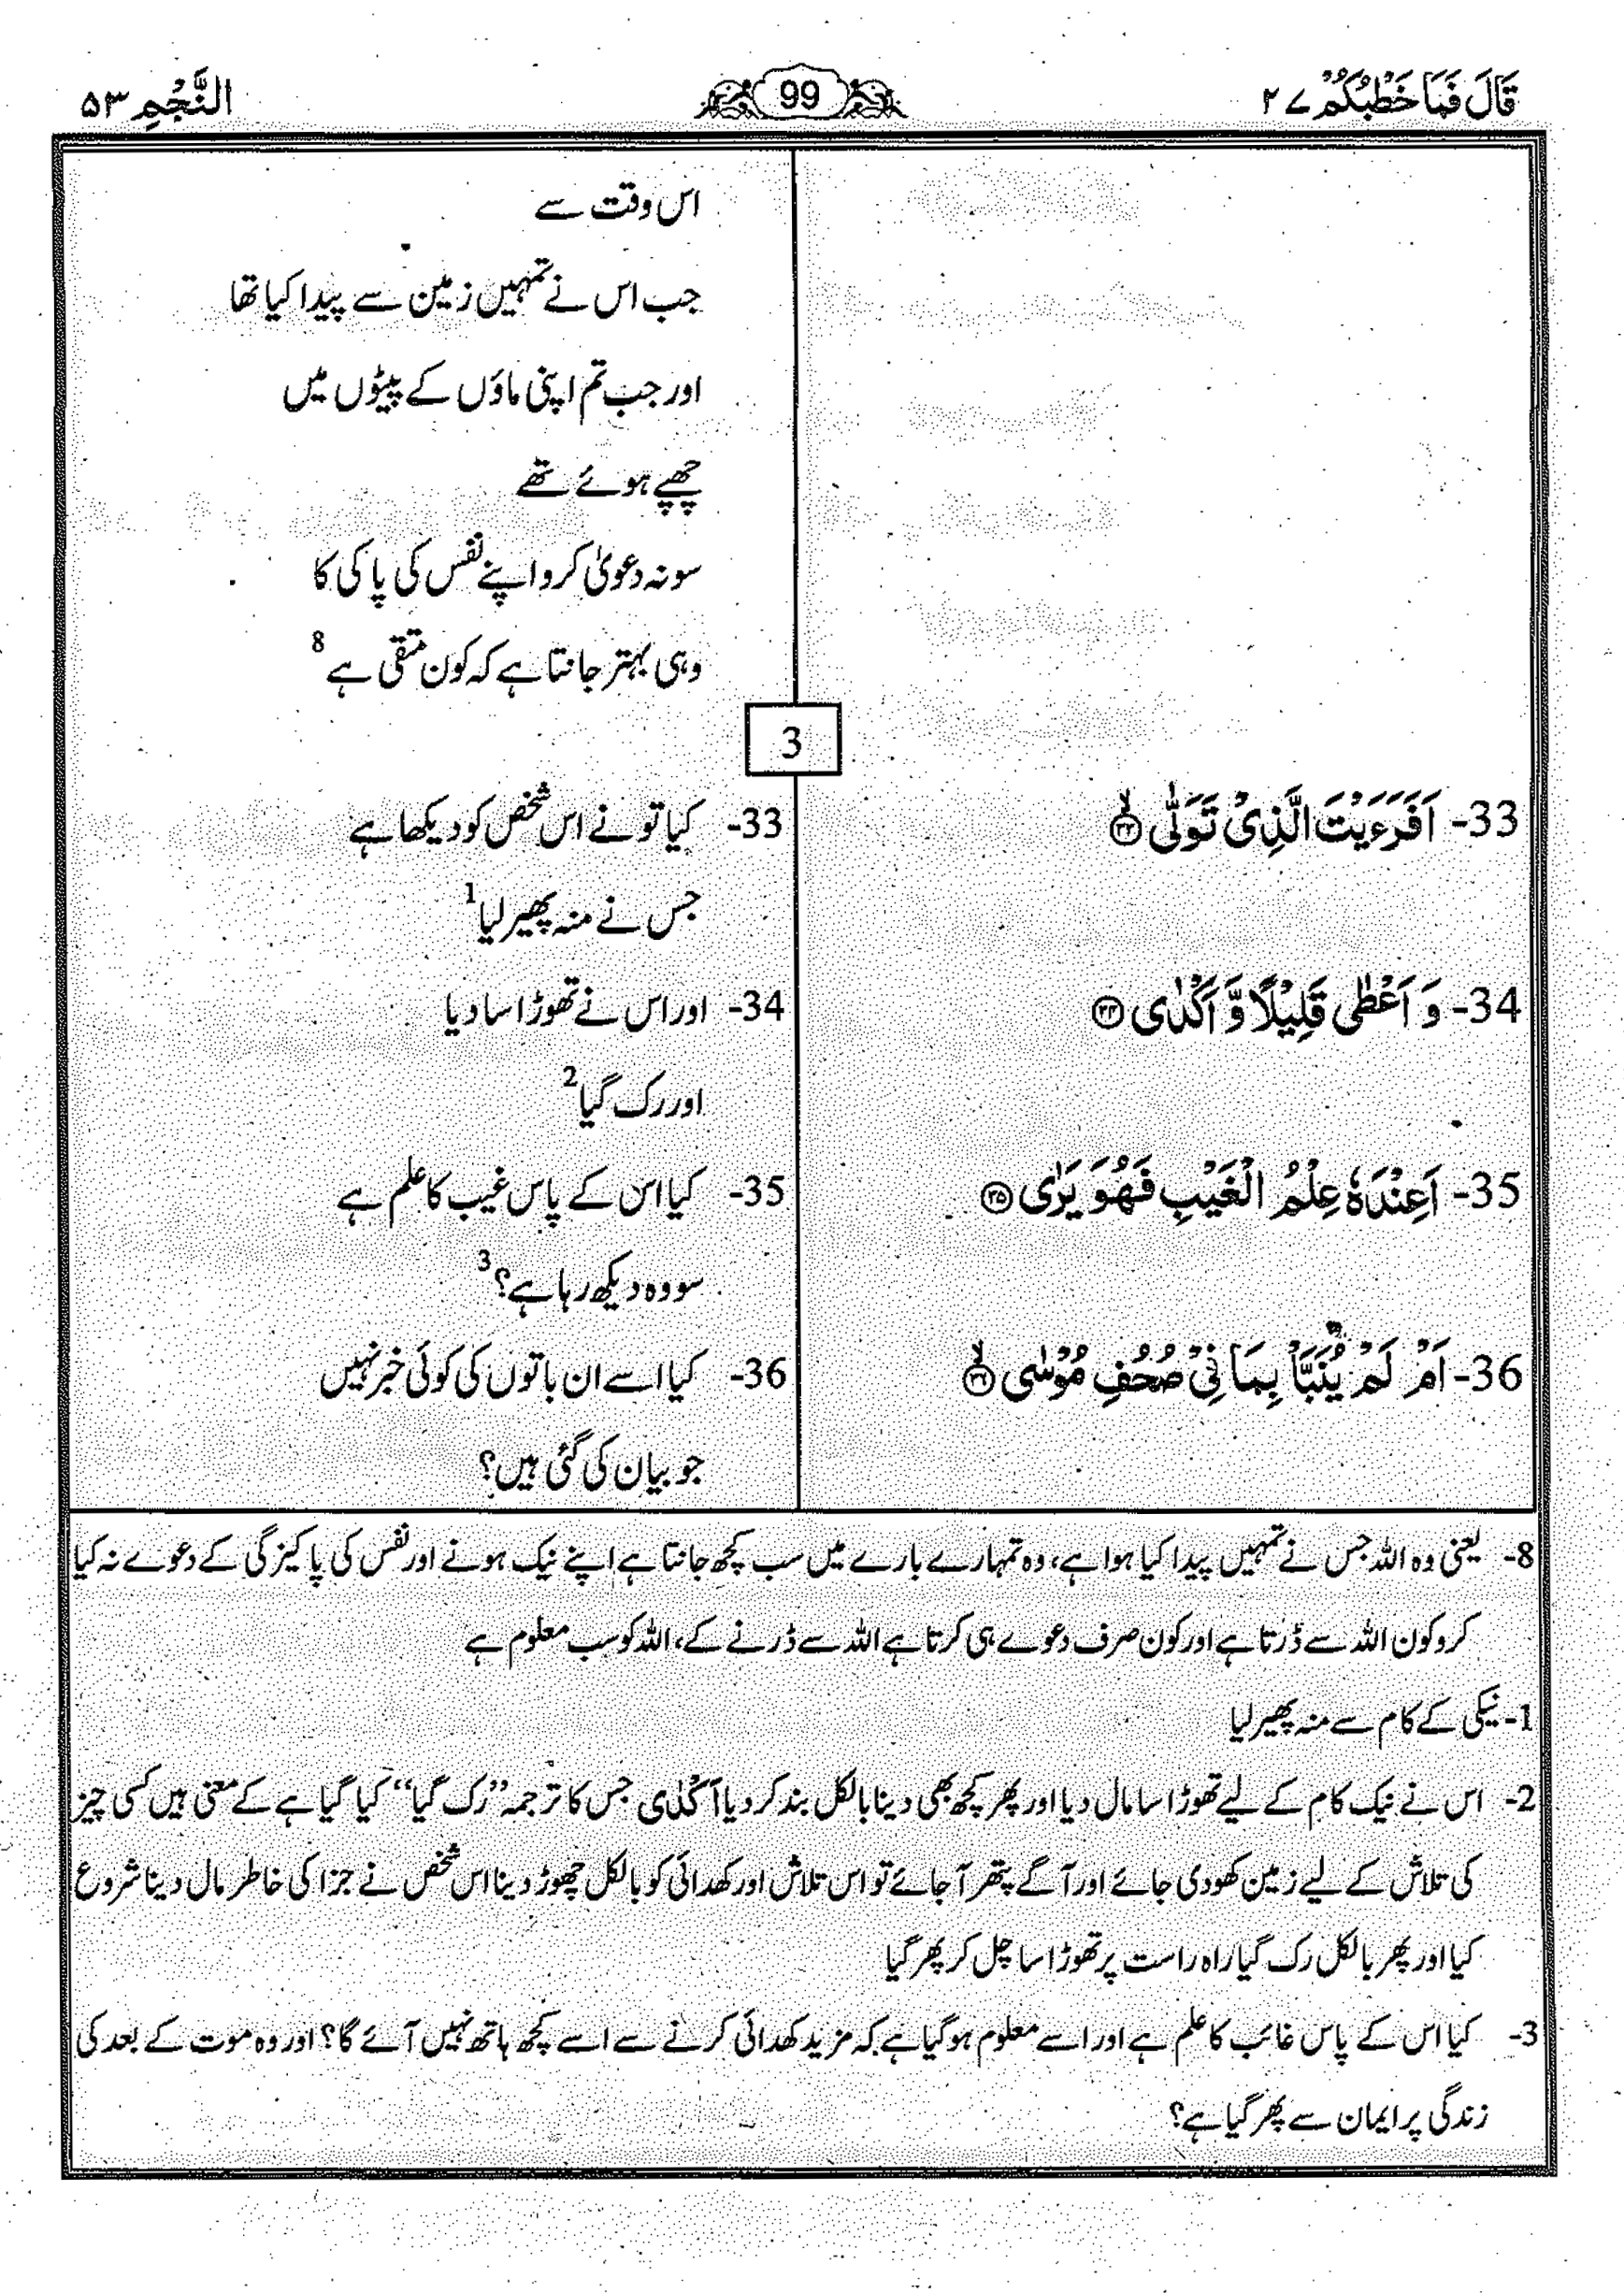 قَالَ فَمَا خَطْبُكُمْ ۲۷
99
النَّجْمِ ۵۳
اس وقت سے
جب اس نے تمہیں زمین سے پیدا کیا تھا
اور جب تم اپنی ماؤں کے پیٹوں میں
چھپے ہوئے تھے
سو نہ دعویٰ کرو اپنے نفس کی پاکی کا
وہی بہتر جانتا ہے کہ کون متقی ہے 8
3
33- اَفَرَءَيْتَ الَّذِیْ تَوَلّٰی ۙ﴿۳۳﴾
33- کیا تو نے اس شخص کو دیکھا ہے
جس نے منہ پھیر لیا 1
34- وَ اَعْطٰی قَلِیْلًا وَّ اَكْدٰی ﴿۳۴﴾
34- اور اس نے تھوڑا سا دیا
اور رک گیا 2
35- اَعِنْدَهٗ عِلْمُ الْغَیْبِ فَهُوَ یَرٰی ﴿۳۵﴾
35- کیا اس کے پاس غیب کا علم ہے
سو وہ دیکھ رہا ہے؟ 3
36- اَمْ لَمْ یُنَبَّاْ بِمَا فِیْ صُحُفِ مُوْسٰی ۙ﴿۳۶﴾
36- کیا اسے ان باتوں کی کوئی خبر نہیں
جو بیان کی گئی ہیں؟
8- یعنی وہ اللہ جس نے تمہیں پیدا کیا ہوا ہے، وہ تمہارے بارے میں سب کچھ جانتا ہے اپنے نیک ہونے اور نفس کی پاکیزگی کے دعوے نہ کیا
کرو کون اللہ سے ڈرتا ہے اور کون صرف دعوے ہی کرتا ہے اللہ سے ڈرنے کے، اللہ کو سب معلوم ہے
1- نیکی کے کام سے منہ پھیر لیا
2- اس نے نیک کام کے لیے تھوڑا سا مال دیا اور پھر کچھ بھی دینا بالکل بند کر دیا اَكْدٰی جس کا ترجمہ ”رک گیا“ کیا گیا ہے کے معنی ہیں کسی چیز
کی تلاش کے لیے زمین کھودی جائے اور آگے پتھر آ جائے تو اس تلاش اور کھدائی کو بالکل چھوڑ دینا اس شخص نے جزا کی خاطر مال دینا شروع
کیا اور پھر بالکل رک گیا راہ راست پر تھوڑا سا چل کر پھر گیا
3- کیا اس کے پاس غائب کا علم ہے اور اسے معلوم ہو گیا ہے کہ مزید کھدائی کرنے سے اسے کچھ ہاتھ نہیں آئے گا؟ اور وہ موت کے بعد کی
زندگی پر ایمان سے پھر گیا ہے؟